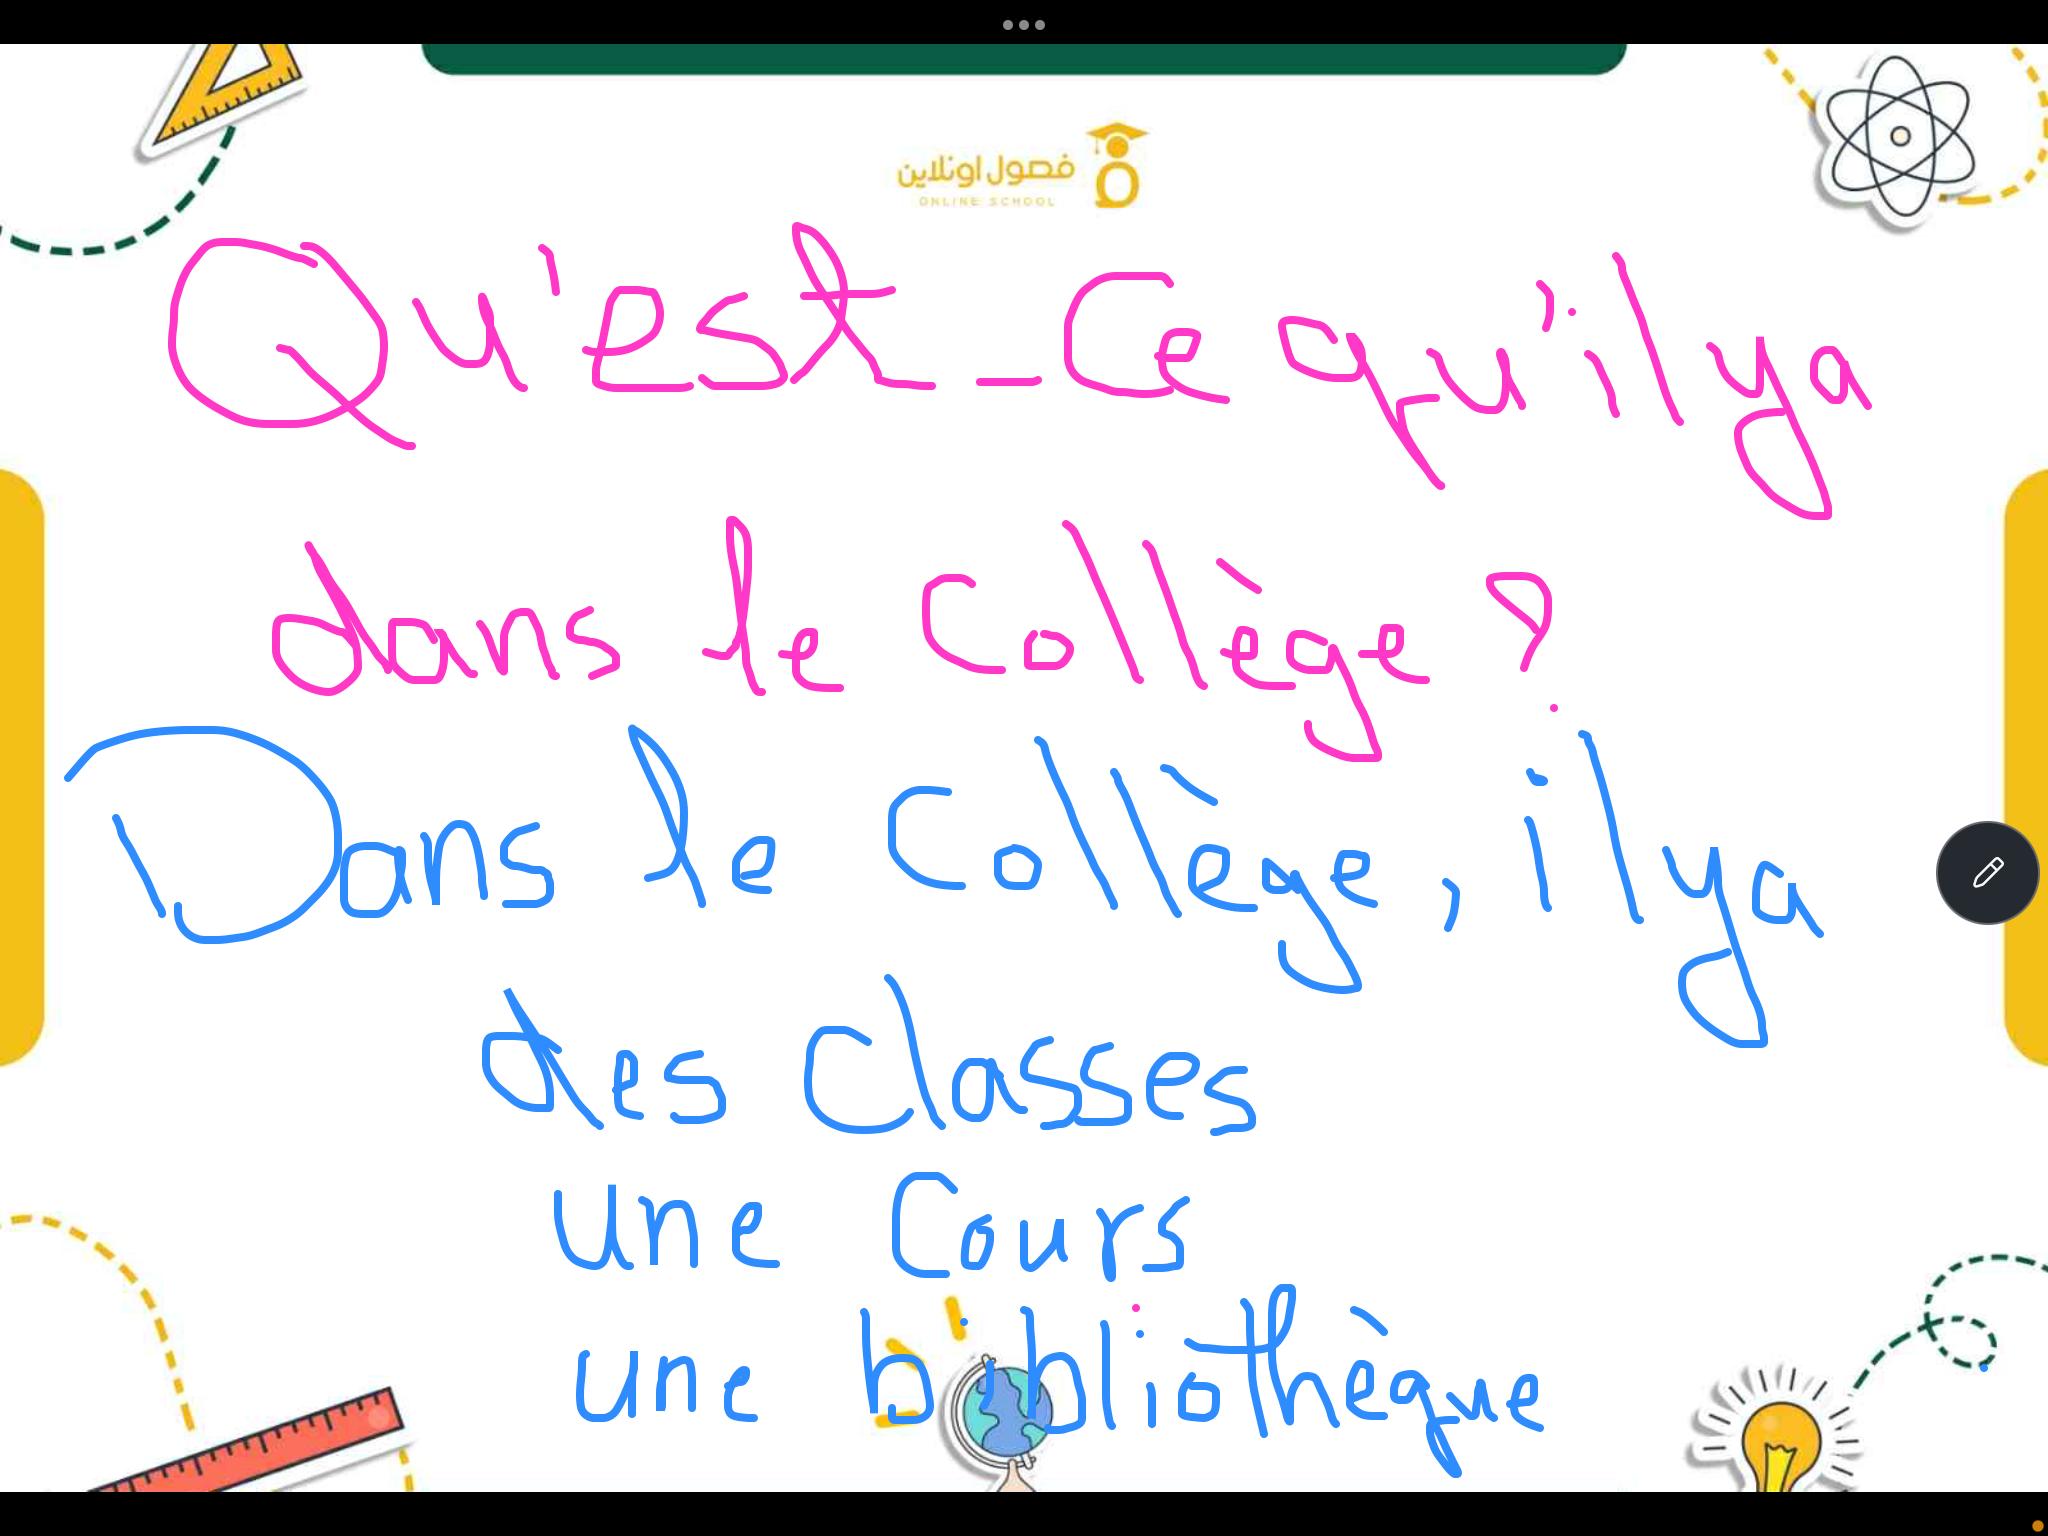 فصول اونلاين
ONLINE SCHOOL
Qu'est_Ce qu'il y a
dans le Collège ?
Dans le Collège, il y a
des Classes
une Cours
une bibliothèque